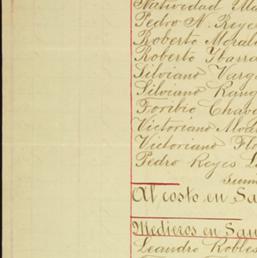 Natividad Ma
Pedro N. Reye
Roberto Moral
Roberto Ybarra
Silviano Varg
Silviano Rang
Toribio Chav
Victoriano Mod
Victoriano Flo
Pedro Reyes L
Suma
Al costo en Sa
Medieros en San
Leandro Robles